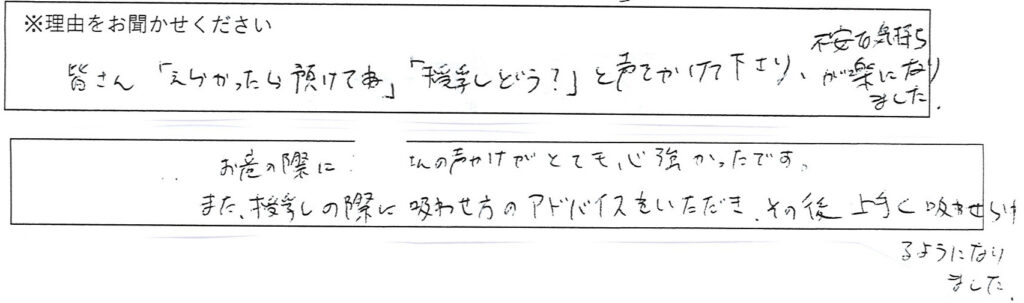 ※理由をお聞かせください
皆さん「えらかったら預けてね」「授乳しどう？」と声をかけて下さり、不安な気持ち
が楽になり
ました。
お産の際に さんの声かけがとても心強かったです。
また、授乳しの際に吸わせ方のアドバイスをいただき、その後上手く吸わせられ
るようになり
ました。